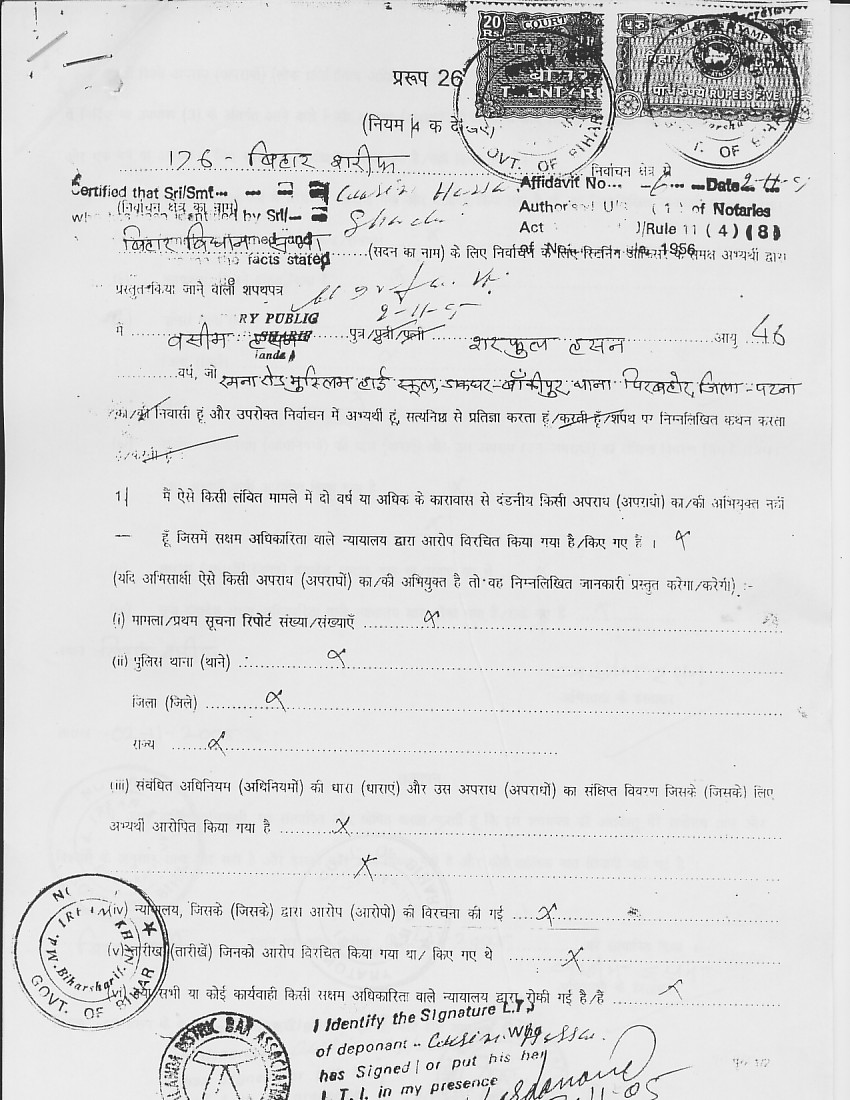 20 Rs.
COURT
भारत
WELFARE STAMP
बिहार
RUPEES FIVE
GOVT. OF BIHAR
OF BIHAR
प्ररूप 26
(नियम 4 क देखिए)
176 - बिहार शरीफ
निर्वाचन क्षेत्र से
Certified that Sri/Smt
Affidavit No... 6 Date 2-11-
(निर्वाचन क्षेत्र का नाम)
by Srl/
Authorised U/ (1) of Notaries
Act )/Rule 11 (4) (8)
बिहार विधान सभा
(सदन का नाम) के लिए निर्वाचन के लिए रिटर्निंग ऑफिसर के समक्ष अभ्यर्थी द्वारा
the facts stated
of 1956
प्रस्तुत किया जाने वाला शपथपत्र
2-11-05
RY PUBLIC
मैं वसीम हसन पुत्र/पुत्री/पत्नी शरफुल हसन आयु 46
वर्ष, जो रमना रोड मुस्लिम हाई स्कूल, डाकघर-बाँकीपुर, थाना पिरबहोर, जिला-पटना
का/की निवासी हूं और उपरोक्त निर्वाचन में अभ्यर्थी हूं, सत्यनिष्ठ से प्रतिज्ञा करता हूं/करती हूँ/शपथ पर निम्नलिखित कथन करता
हूं/करती हूं
1| मैं ऐसे किसी लंबित मामले में दो वर्ष या अधिक के कारावास से दंडनीय किसी अपराध (अपराधों) का/की अभियुक्त नहीं
हूँ जिसमें सक्षम अधिकारिता वाले न्यायालय द्वारा आरोप विरचित किया गया है/किए गए हैं । x
(यदि अभिसाक्षी ऐसे किसी अपराध (अपराधों) का/की अभियुक्त है तो वह निम्नलिखित जानकारी प्रस्तुत करेगा/करेगी) :-
(i) मामला/प्रथम सूचना रिपोर्ट संख्या/संख्याएँ x
(ii) पुलिस थाना (थाने) x
जिला (जिले) x
राज्य x
(iii) संबंधित अधिनियम (अधिनियमों) की धारा (धाराएं) और उस अपराध (अपराधों) का संक्षिप्त विवरण जिसके (जिसके) लिए
अभ्यर्थी आरोपित किया गया है x
x
(iv) न्यायालय, जिसके (जिसके) द्वारा आरोप (आरोपो) की विरचना की गई x
(v) तारीख (तारीखें) जिनको आरोप विरचित किया गया था/ किए गए थे x
(vi) क्या सभी या कोई कार्यवाही किसी सक्षम अधिकारिता वाले न्यायालय द्वारा रोकी गई है/हैं x
Md. IRFAN KHAN
Biharsharif
GOVT. OF BIHAR
NALANDA DISTRICT BAR ASSOCIATION
I Identify the Signature L.T.I
of deponant Wasim Hassan Who
has Signed / or put his her
L. T. I. in my presence
2-11-05